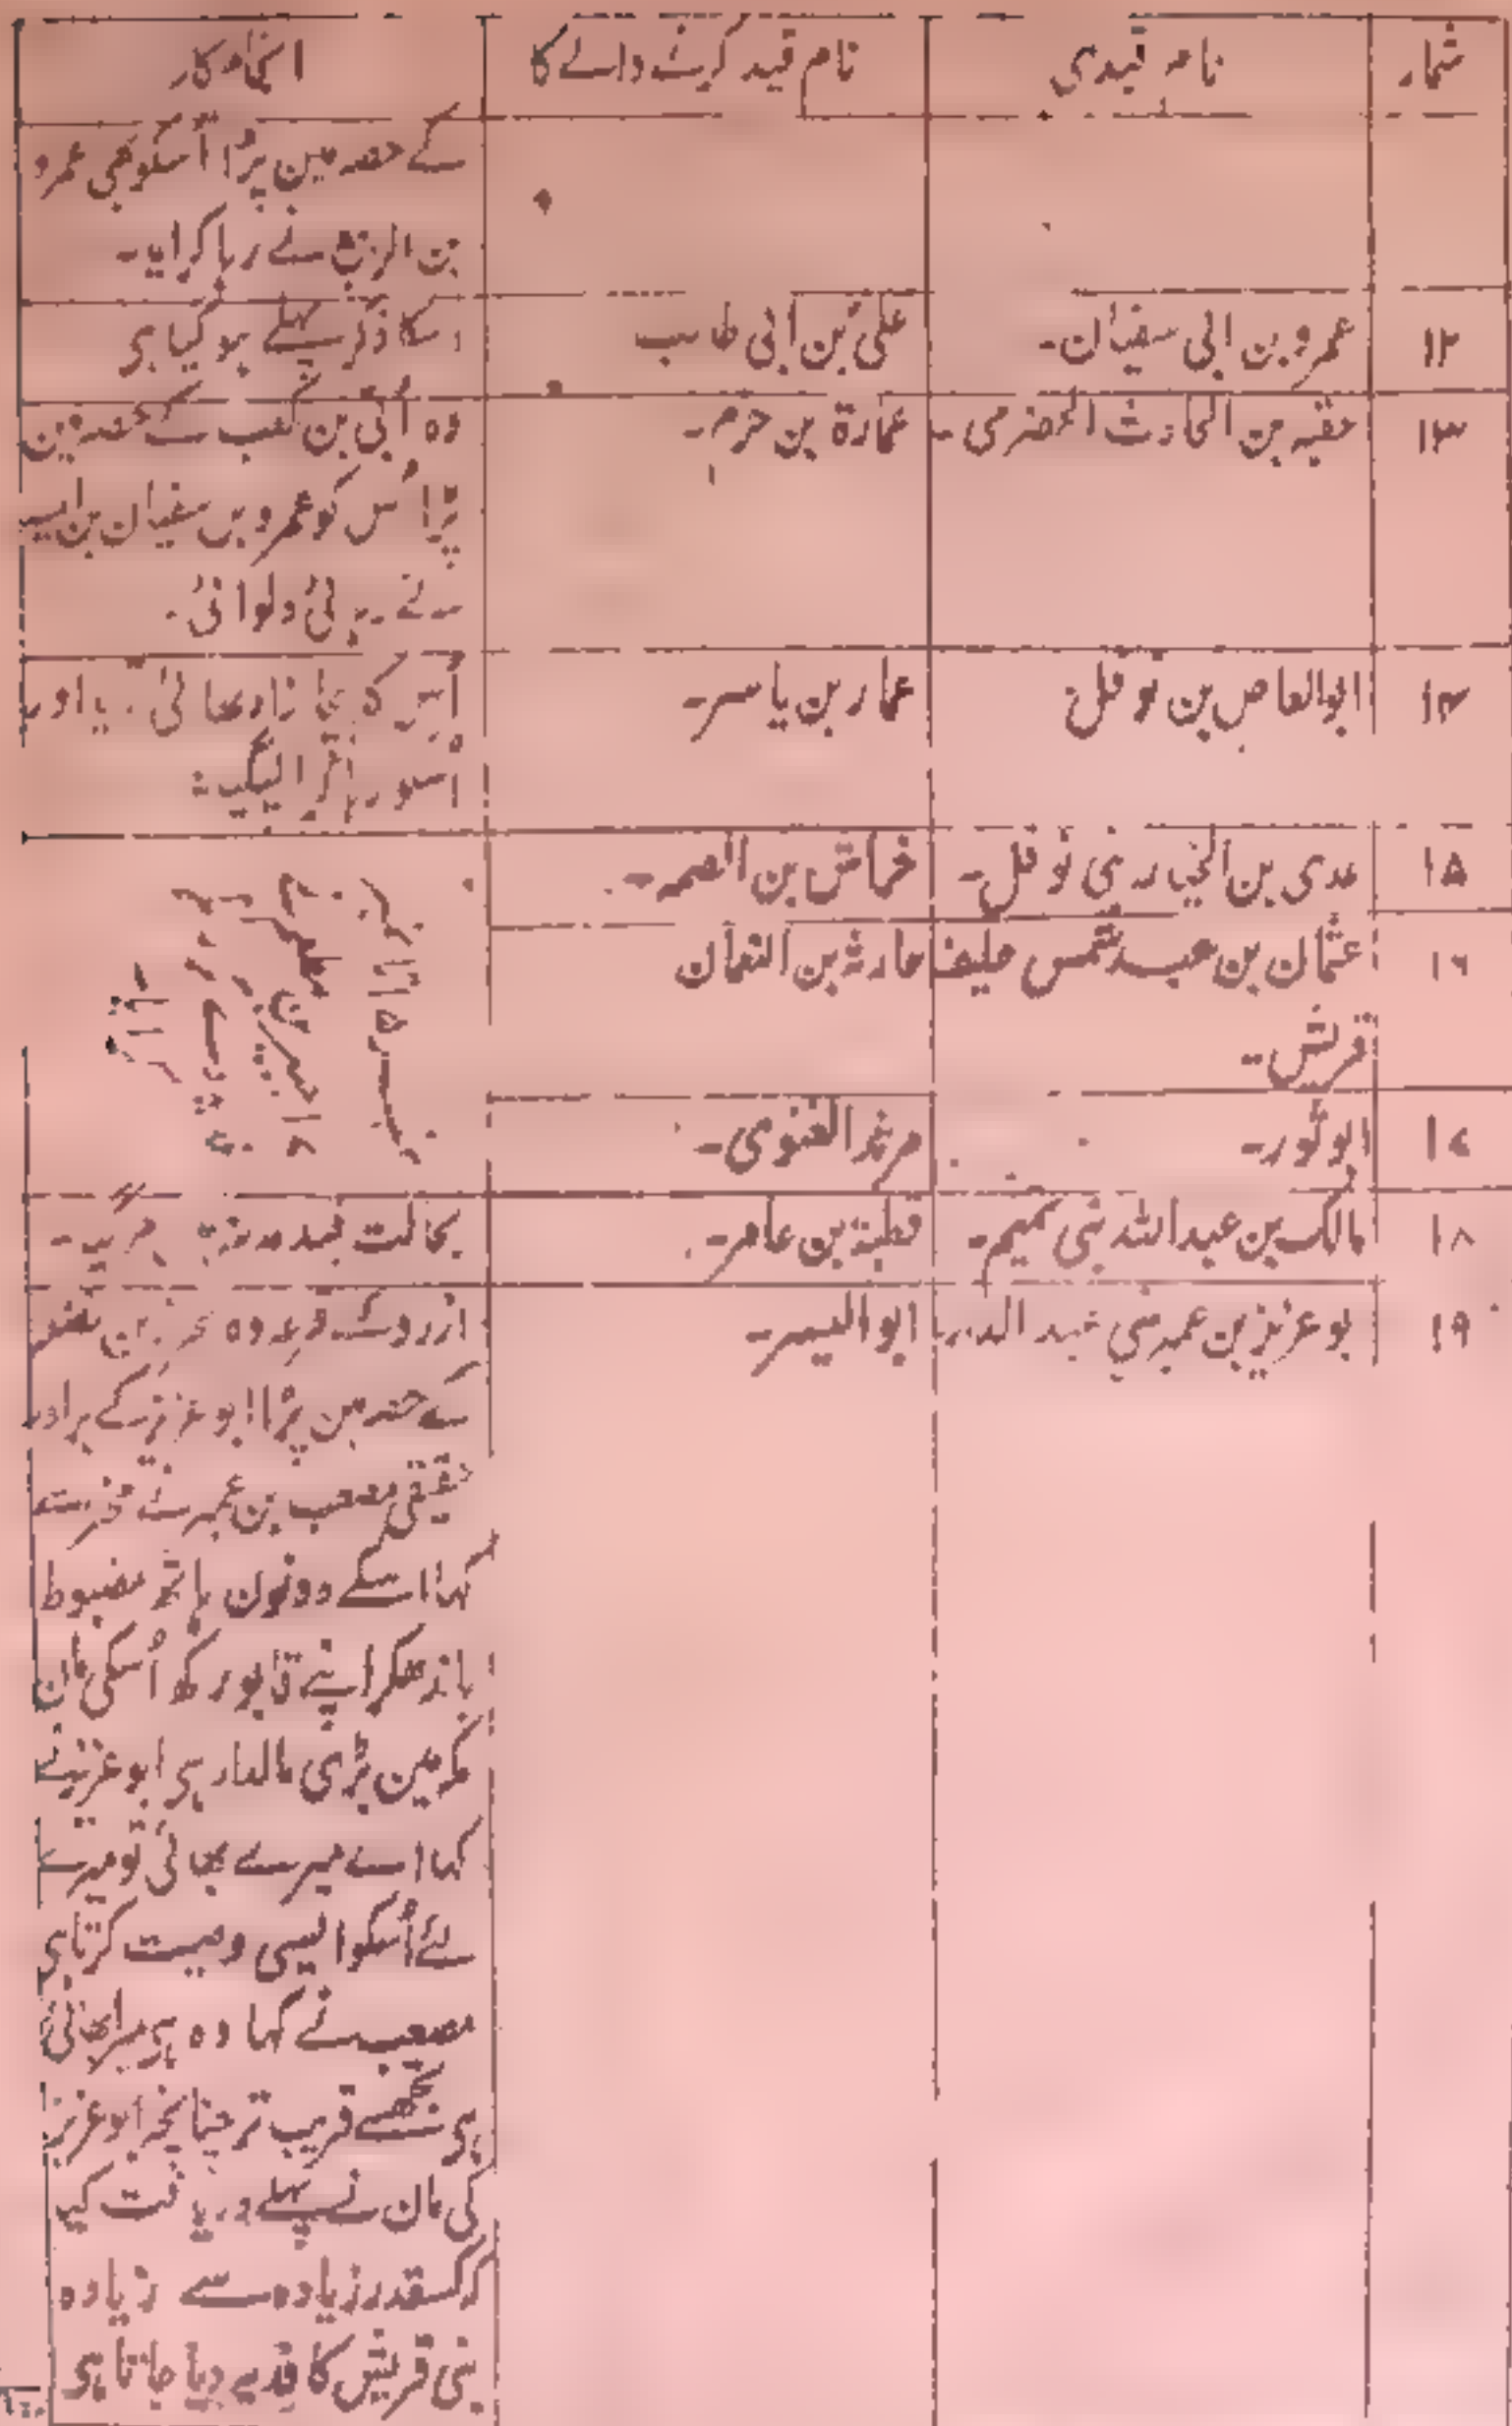 شمار نام قیدی نام قید کرنے والے کا انجام کار
کے حصہ مین پڑا اُسکو بھی عمرو
بن الربیع نے رہا کرایا۔
۱۲ عمرو بن ابی سفیان۔ علی بن ابی طالب اسکا ذکر پہلے ہو گیا ہی
۱۳ عقبہ بن الحارث الحضرمی۔ عمارة بن حزم۔ وہ اُبی بن کعب کے حصہ مین
پڑا اُس کو عمرو بن سفیان بن امیہ
نے رہائی دلوائی۔
۱۴ ابوالعاص بن نوفل عمار بن یاسر۔ اُس کا چچا زاد بھائی آیا اور
اُسکو رہا کرا لیگیا
۱۵ عدی بن الخیار بنی نوفل۔ خراش بن الصمہ۔
۱۶ عثمان بن عبد شمس حلیف حارثہ بن النعمان
قریش۔
۱۷ ابو ثور۔ مرثد الغنوی۔
۱۸ مالک بن عبداللہ بنی تمیم۔ قطبة بن عامر۔ بحالت قید مدینہ مر گیا۔
۱۹ بوعزیز بن عمیر بنی عبد الدار ابوالیسر۔ ازروے قرعہ وہ محرز بن نضلہ
کے حصہ مین پڑا ابوعزیز کے برادر
حقیقی مصعب بن عمیر نے محرز سے
کہا اسکے دونون ہاتھ مضبوط
باندھکر اپنے قابو رکھ اُسکی مان
مکہ مین بڑی مالدار ہی ابوعزیز نے
کہا اے میرے بھائی تو میرے
لئے اُسکو ایسی وصیت کرتا ہی
مصعب نے کہا وہ ہی میرا بھائی
ہی تجھسے قریب تر چنانچہ ابوعزیز
کی مان نے پہلے دریافت کیا
کہ کسقدر زیادہ سے زیادہ
بنی قریش کا فدیہ دیا جاتا ہی